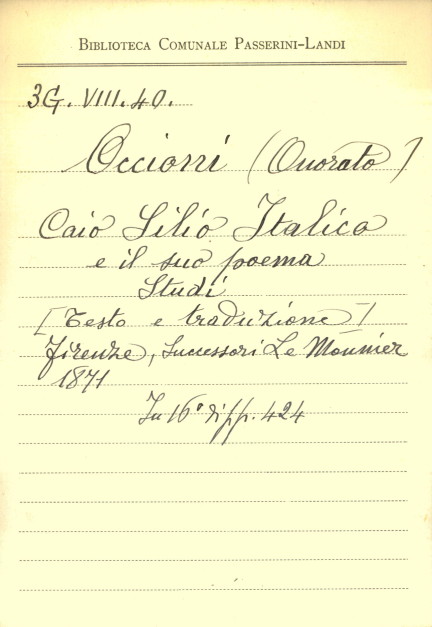 BIBLIOTECA COMUNALE PASSERINI-LANDI
3G. VIII. 40.
Occioni (Onorato)
Caio Silio Italico
e il suo poema
Studi
[Testo e traduzione]
Firenze, Successori Le Monnier
1871
In 16° di pp. 424